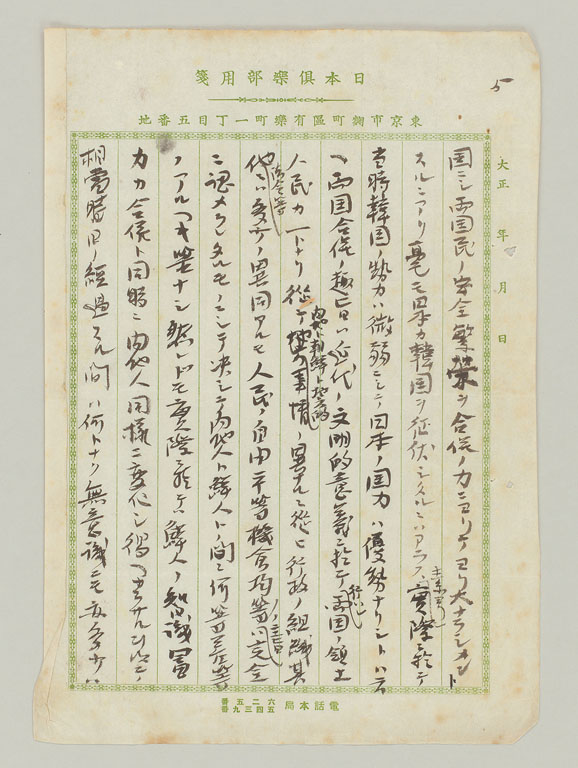 日本俱樂部用箋
東京市麹町區有樂町一丁目五番地
5
大正 年 月 日
国ニシ両国民ノ安全繁榮ヲ合併ノ力ニヨリテヨリ大ナラシメント
スルニアリ毫モ日本カ韓国ヲ征伏シタルニハアラス実際ニ於テ
当時韓国ノ勢力ハ微弱ニシテ日本ノ国力ハ優勢ナリシトハ
両国合併ノ趣旨ハ近代ノ文明的意義ニ於テ両国ノ領土
人民カ一トナリ従テ内地ト朝鮮ト異ナルニ從ヒ行政ノ組織其
他ニハ多少ノ異同アルモ人民ノ自由平等機会均等ハ完全
ニ認メラレタルモノニシテ決シテ内地人ト鮮人トノ間ニ何等
ノアルヘキ筈ナシ然レトモ実際ニ於テハ鮮人ノ智識富
力カ合併ト同時ニ内地人同様ニ変化シ得
相当時日ノ経過スル間ハ何トナク無意識ニモ
電話本局
六二五番
五四三九番